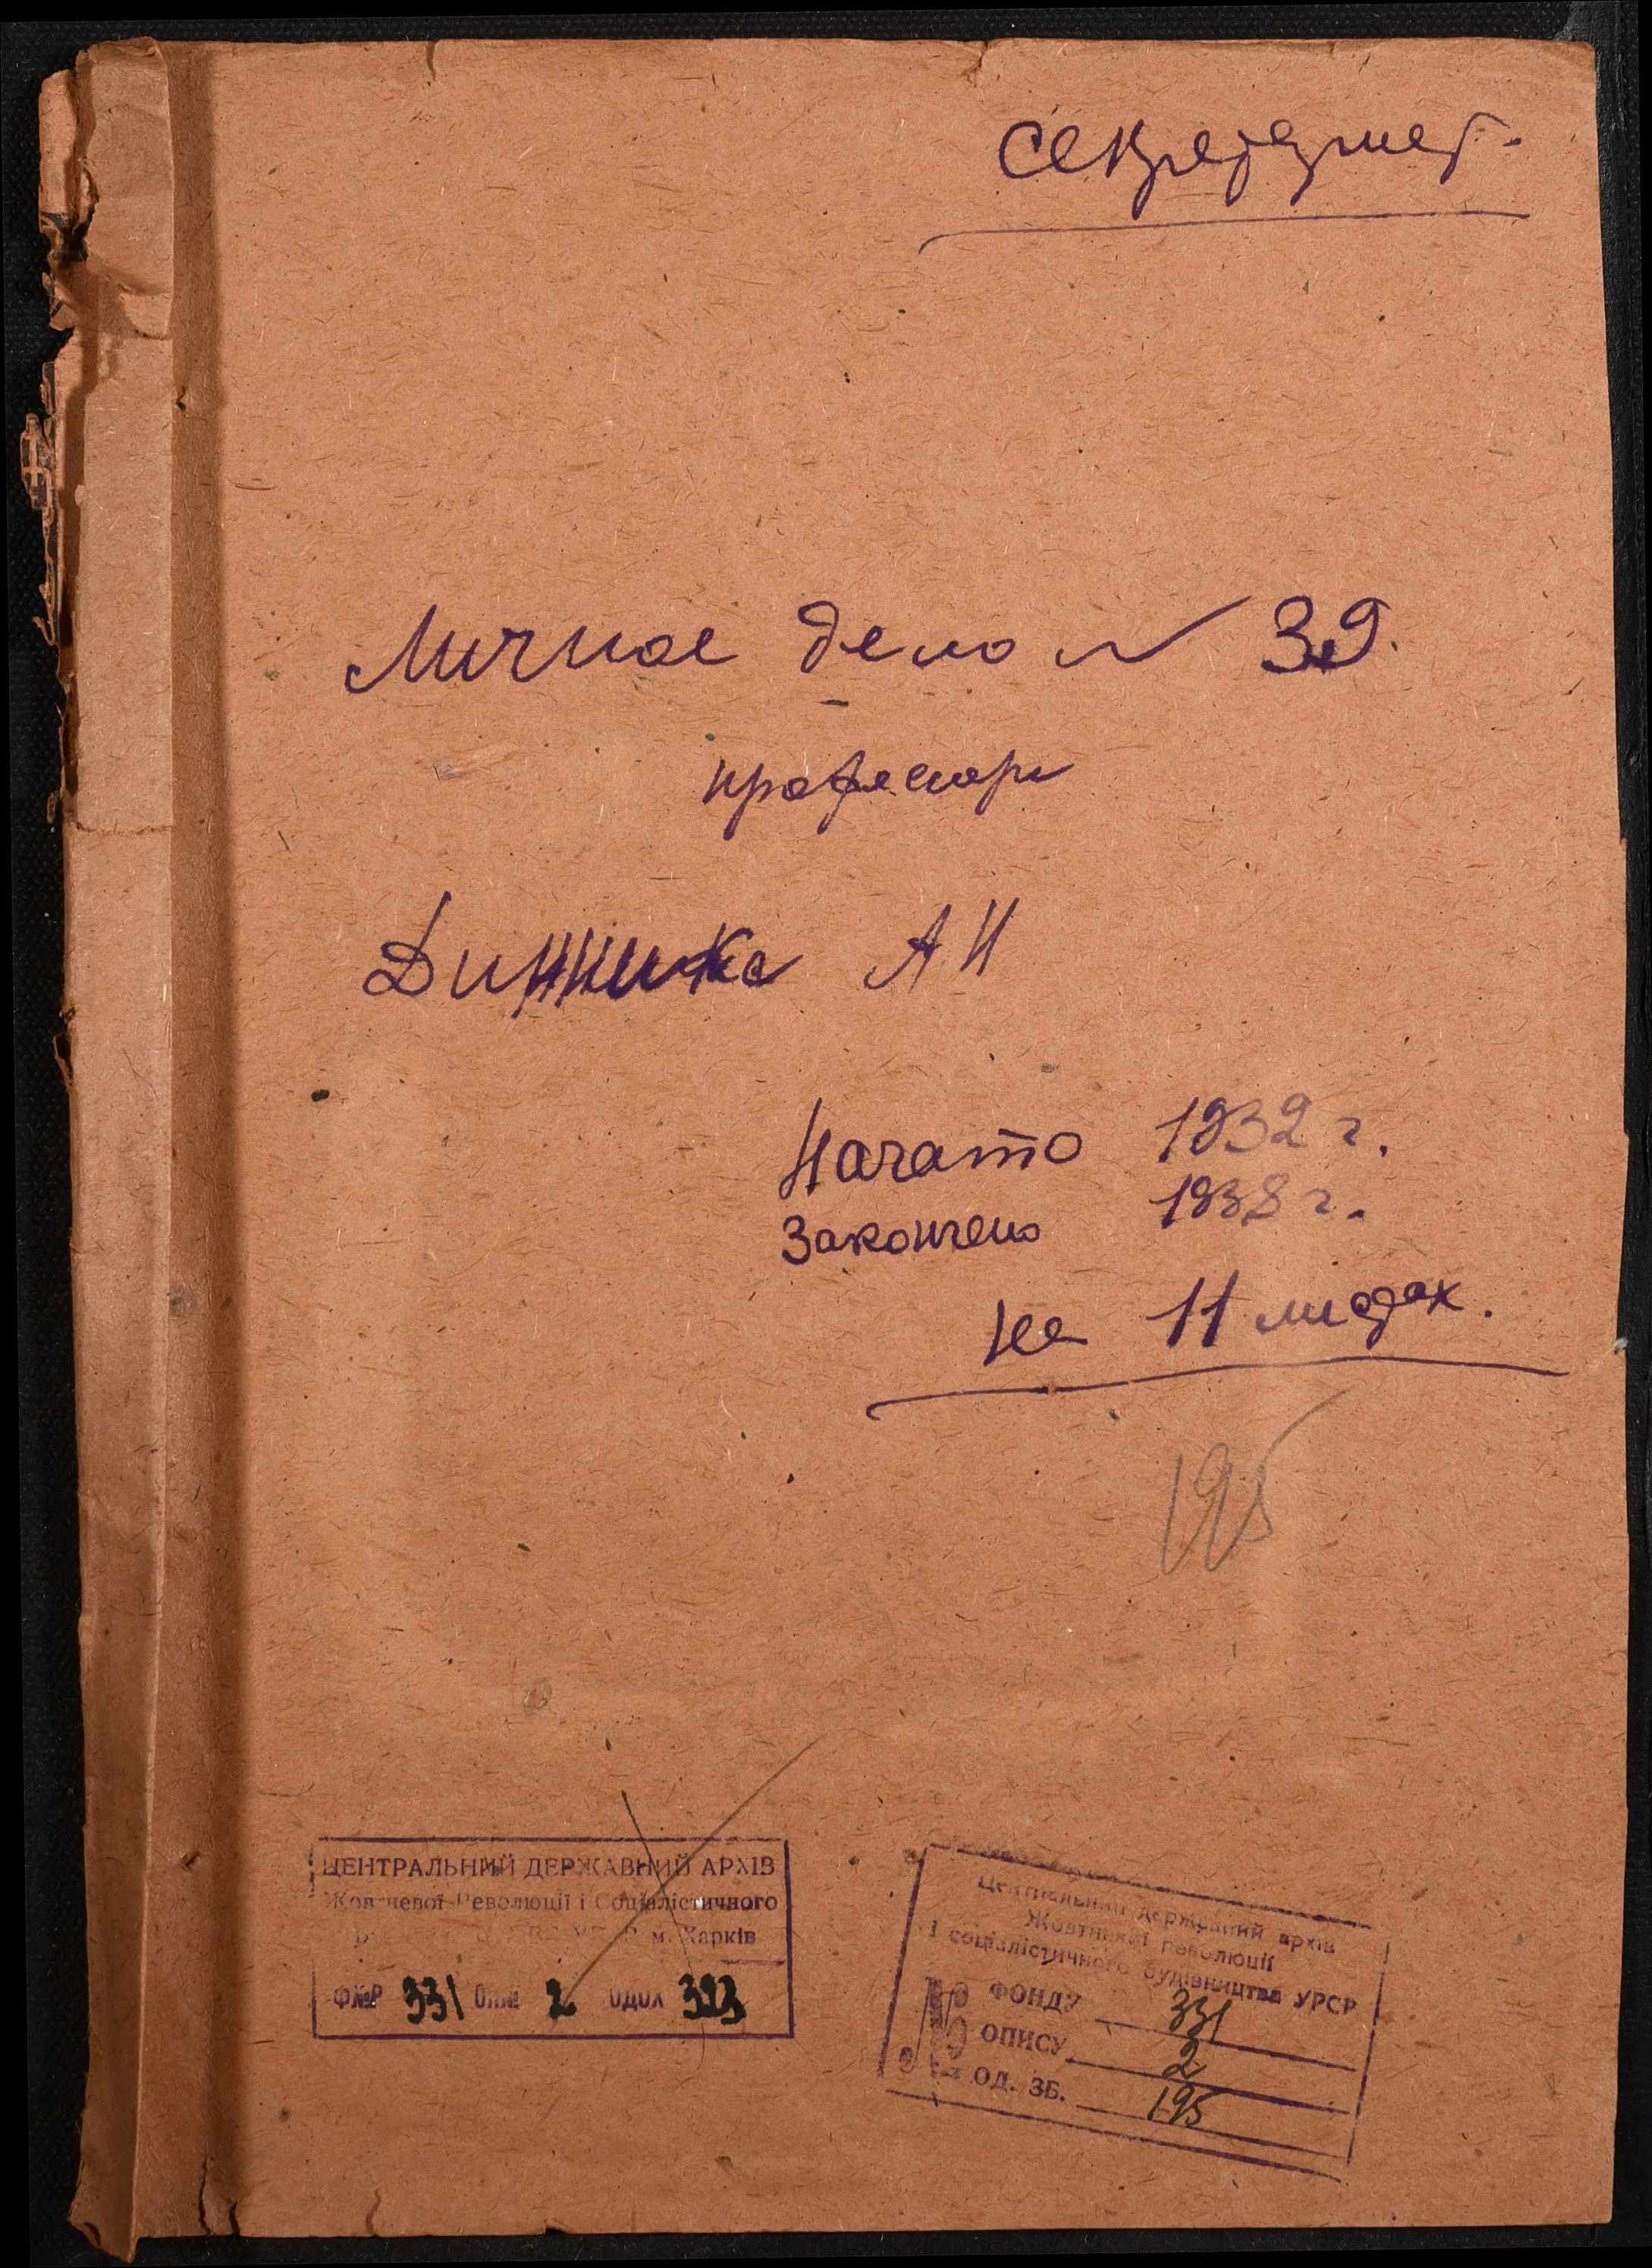 Секретариат.
Личное дело № 39.
професора
Динника А Н
Начато 1932 г.
Закончено 1938 г.
на 11 листах.
195
ЦЕНТРАЛЬНИЙ ДЕРЖАВНИЙ АРХІВ
Жовтневої Революції і Соціалістичного
м. Харків
Ф№Р 331 ОП№ 2 ОДОХ 323
Центральний державний архів
Жовтневої революції
і соціалістичного будівництва УРСР
№ ФОНДУ 331
ОПИСУ 2
ОД. ЗБ. 195